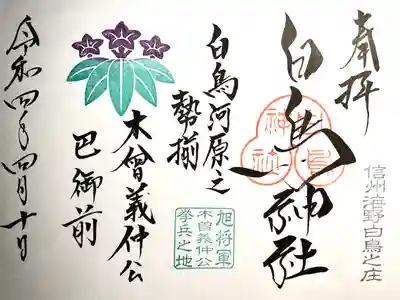 奉拝
信州海野白鳥之庄
白鳥神社
白鳥河原之
勢揃
旭将軍
木曽義仲公
挙兵之地
木曽義仲公
巴御前
令和四年四月十日